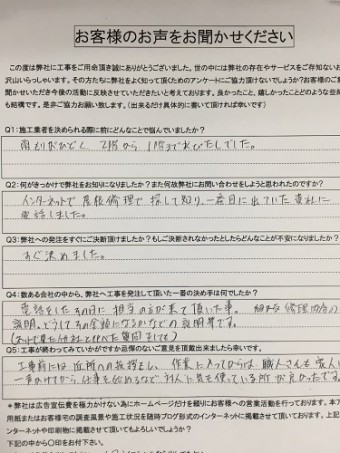 お客様のお声をお聞かせください
この度は弊社に工事をご用命頂き誠にありがとうございました。世の中には弊社の存在やサービスをご存知ないお
沢山いらっしゃいます。その方たちに弊社をよく知って頂くためのアンケートにご協力頂けないでしょうか?お客様のご
聞かせいただき今後の活動に反映させていただきたいと考えております。良かったこと、嬉しかったことどのような些
も結構です。是非ご協力お願い致します。(出来るだけ具体的に書いて頂ければ幸いです)
Q1:施工業者を決められる際に前にどんなことで悩んでいましたか?
雨もりがひどく、2階から1階まで
Q2:何がきっかけで弊社をお知りになりましたか?また何故弊社にお問い合わせをしようと思われたのですか?
インターネットで屋根修理で探して知り、一番目に出ていた貴社に
電話しました。
Q3:弊社への発注をすぐにご決断頂けましたか?もしご決断されなかったとしたらどんなことが不安になりましたか?
すぐ決めました。
Q4:数ある会社の中から、弊社へ工事を発注して頂いた一番の決め手は何でしたか?
電話をしたその日に担当の方が来て頂いた事。細かな修理内容の
説明、どうしてその金額になるかなどの説明等です。
Q5:工事が終わってみていかがですか品悍のないご意見を頂戴出来ましたら幸いです。
工事前には近所への挨拶をし、作業に入ってからは、職人さんも
声をかけてから仕事を始めるなど、対人に気を使っている所が良かったです。
*弊社は広告宣伝費を極力かけない為にホームページだけを頼りにお客様への営業活動を行っております。本ア
用紙またはお客様宅の調査風景や施工状況を随時ブログ形式のインターネットに掲載させて頂いております。上記
ンターネットや印刷物に掲載させて頂いてもよろしいでしょうか?
下記の中から〇印をお付下さい。